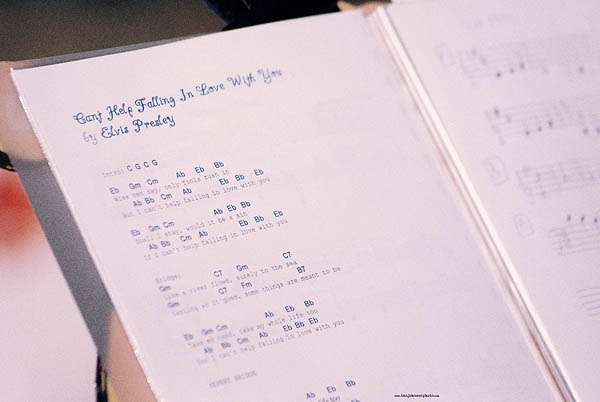 Can't Help Falling In Love With You
by Elvis Presley
Intro: C G C G
Eb Gm Cm Ab Eb Bb
Wise men say, only fools rush in
Ab Bb Cm Ab Eb Bb Eb
But I can't help falling in love with you
Eb Gm Cm Ab Eb Bb
Shall I stay, would it be a sin
Ab Bb Cm Ab Eb Bb Eb
If I can't help falling in love with you
Bridge: C7 Gm C7
Gm
Like a river flows, surely to the sea
Gm C7 Fm B7
so it goes, some things are meant to be
Eb Gm Cm Ab Eb Bb
Take my hand, take my whole life too
Ab Bb Cm Ab Eb Bb Eb
But I can't help falling in love with you
REPEAT BRIDGE
Ab Eb Bb